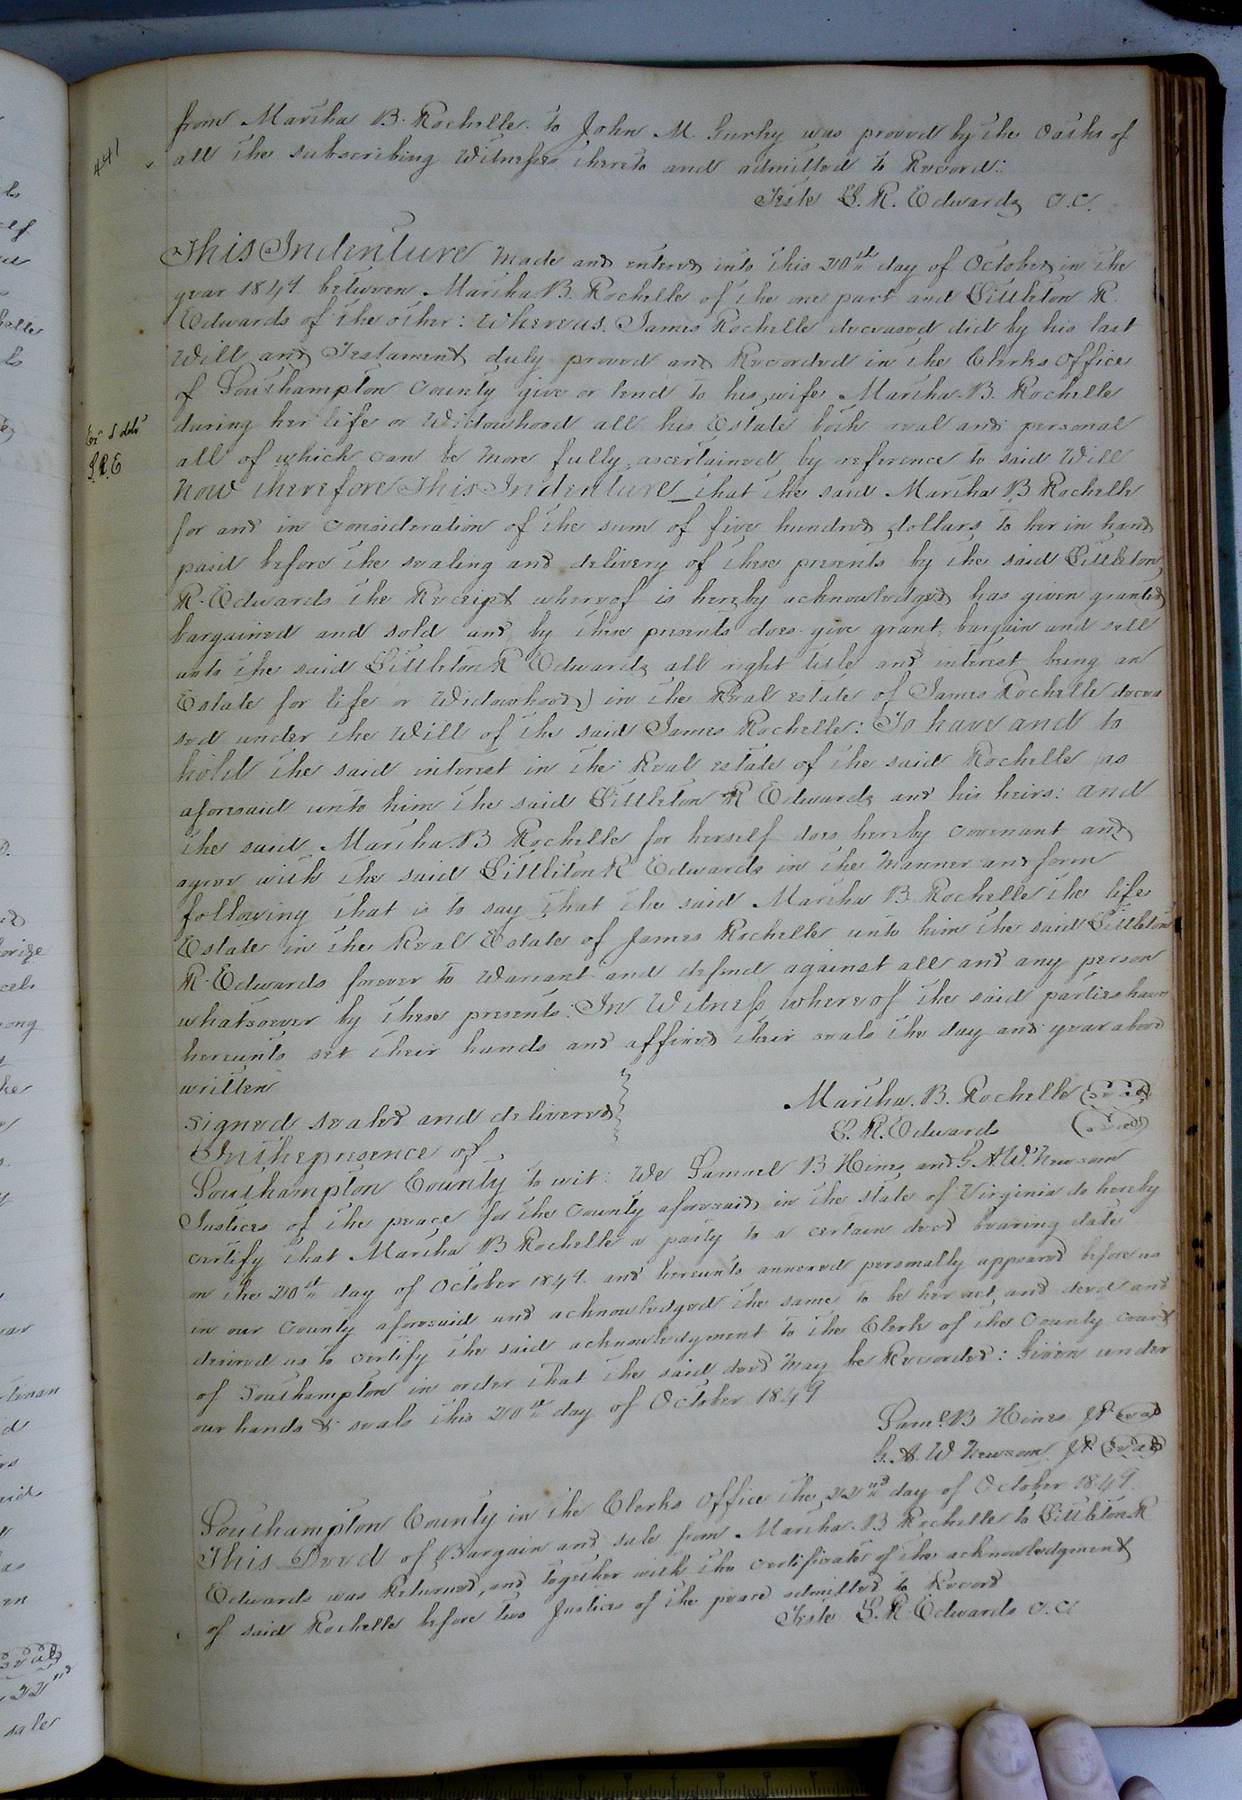 441
from Martha B. Rochelle to John M. Gurley was proved by the oaths of
all the subscribing Witnesses thereto and admitted to Record:
Teste L. R. Edwards C.C.
This Indenture made and entered into this 20th day of October in the
year 1849 between Martha B. Rochelle of the one part and Littleton R.
Edwards of the other: Whereas James Rochelle deceased did by his last
Will and Testament duly proved and Recorded in the Clerks Office
of Southampton County give or lend to his wife Martha B. Rochelle
during her life or Widowhood all his Estate both real and personal
all of which can be more fully ascertained by reference to said Will
L.R.E
Now therefore This Indenture that the said Martha B Rochelle
for and in consideration of the sum of five hundred dollars to her in hand
paid before the sealing and delivery of these presents by the said Littleton
R. Edwards the Receipt whereof is hereby acknowledged has given granted
bargained and sold and by these presents does give grant bargain and sell
unto the said Littleton R Edwards all right title and interest being an
Estate for life or Widowhood) in the Real estate of James Rochelle decea
sed under the Will of the said James Rochelle: To have and to
hold the said interest in the Real estate of the said Rochelle as
aforesaid unto him the said Littleton R Edwards and his heirs: and
the said Martha B Rochelle for herself does hereby covenant and
agree with the said Littleton R Edwards in the manner and form
following that is to say that the said Martha B. Rochelle the life
Estate in the Real Estate of James Rochelle unto him the said Littleton
R. Edwards forever to Warrant and defend against all and any person
whatsoever by these presents: In Witness whereof the said parties have
hereunto set their hands and affixed their seals the day and year above
written
Martha. B. Rochelle (Seal)
Signed sealed and delivered
L. R. Edwards (Seal)
In the presence of
Southampton County to wit: We Samuel B Hines and G. A. W. Newsom
Justices of the peace for the County aforesaid in the state of Virginia do hereby
certify that Martha B Rochelle a party to a certain deed bearing date
on the 20th day of October 1849 and hereunto annexed personally appeared before us
in our County aforesaid and acknowledged the same to be her act and deed and
desired us to certify the said acknowledgment to the Clerk of the County court
of Southampton in order that the said deed may be Recorded: Given under
our hands & seals this 20th day of October 1849
Saml. B Hines J.P. (Seal)
G. A. W Newsom J.P. (Seal)
Southampton County in the Clerks Office the 22nd day of October 1849.
This Deed of Bargain and sale from Martha. B Rochelle to Littleton R
Edwards was Returned, and together with the certificate of the acknowledgment
of said Rochelle before two Justices of the peace admitted to Record
Teste L. R. Edwards C.C